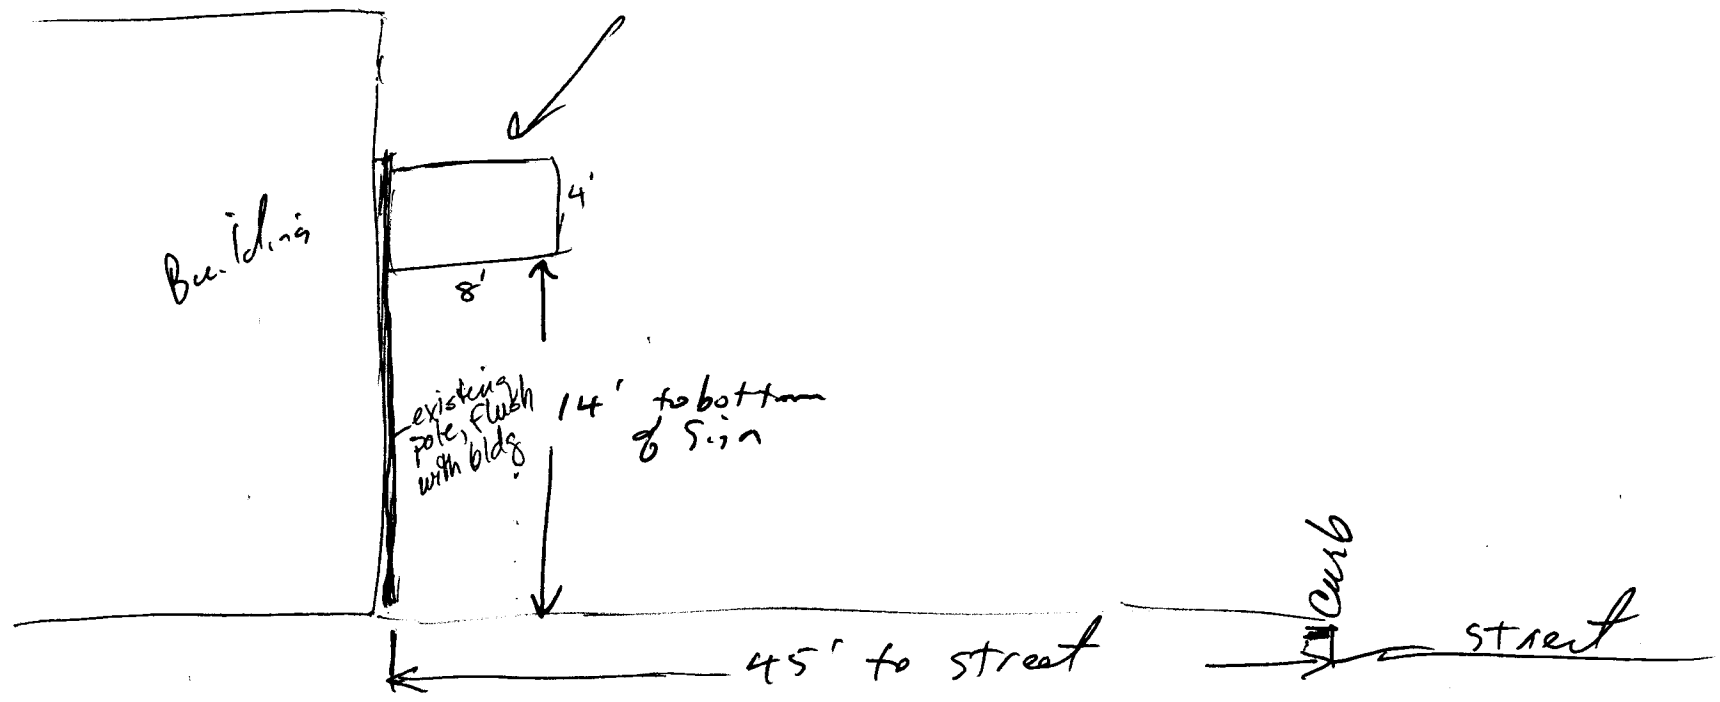 Building
4'
8'
existing
pole, flush
with bldg
14' to bottom
of Sign
Curb
45' to street
street